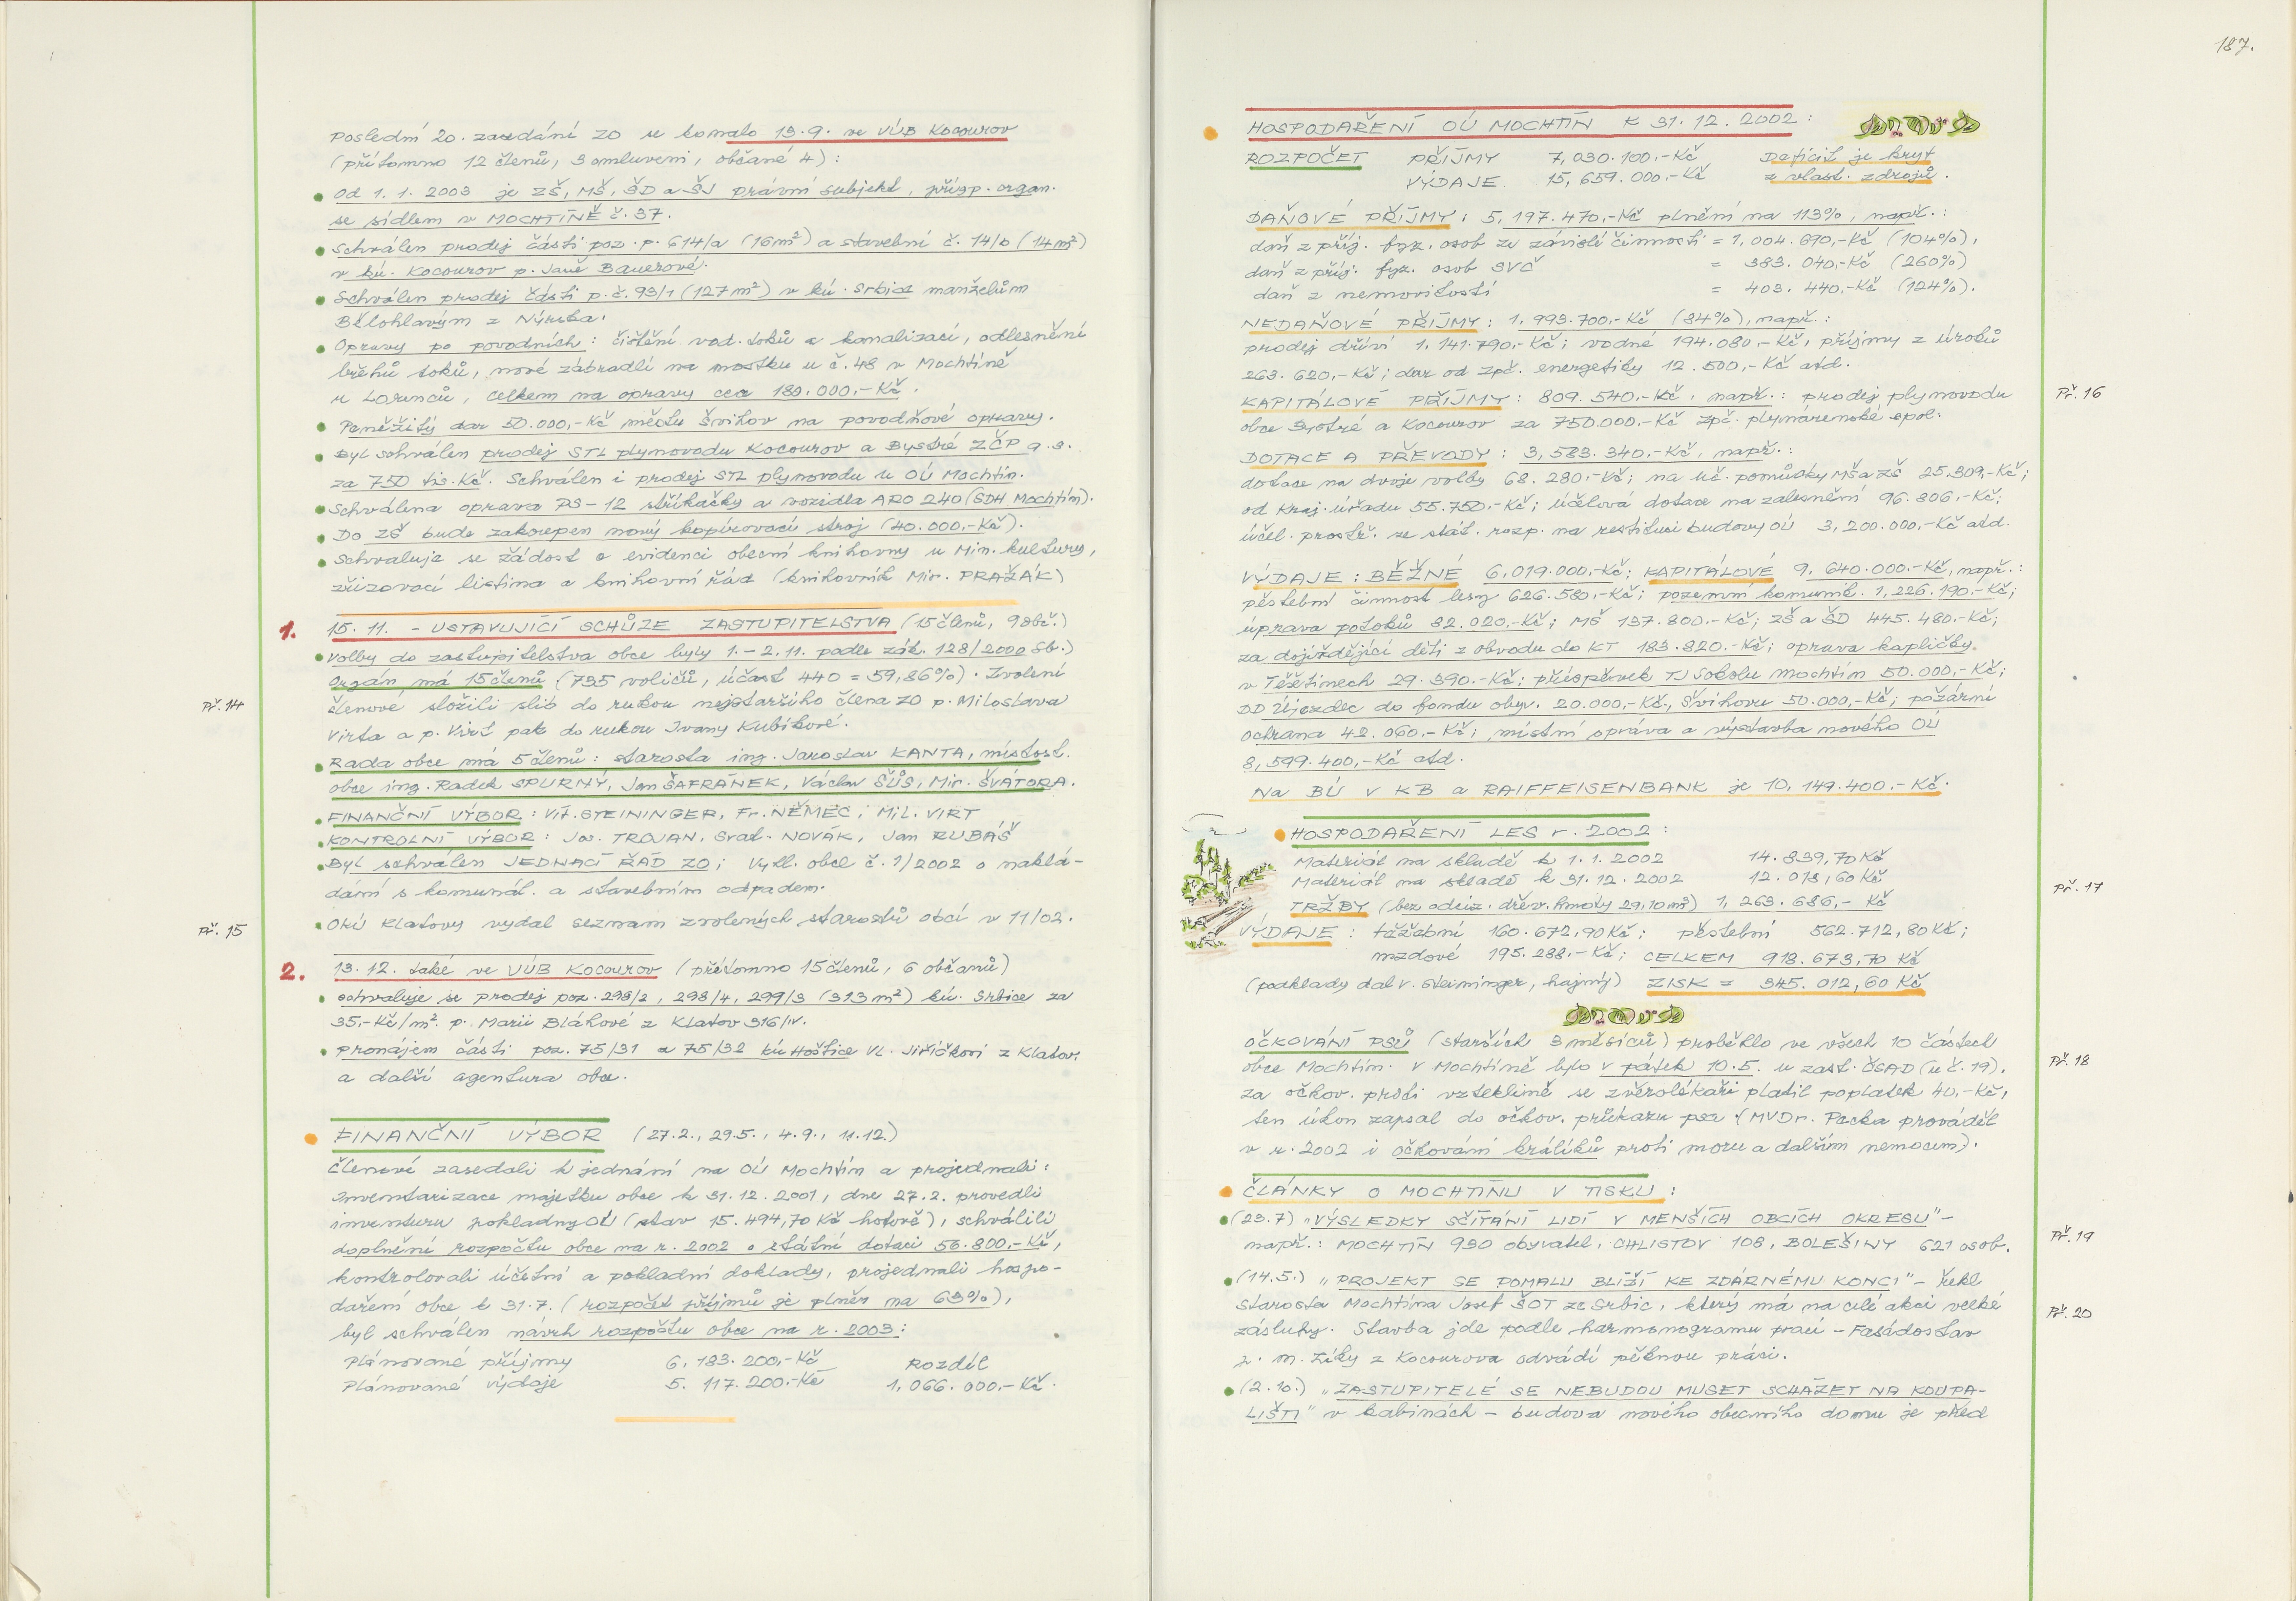 Poslední 20. zasedání ZO se konalo 19.9. ve VÚB Kocourov
(přítomno 12 členů, 3 omluveni, občané 4):
Od 1.1. 2003 je ZŠ, MŠ, ŠD a ŠJ právní subjekt, přísp. organ.
se sídlem v MOCHTÍNĚ č. 37.
Schválen prodej části poz. p. 614/a (16m²) a stavební č. 14/b (14m²)
v kú. Kocourov p. Janě Bauerové.
Schválen prodej části p.č. 93/1 (127m²) v kú. Srbice manželům
Bělohlavým z Nýrska.
Opravy po povodních: čištění vod. toků a kanalizací, odlesnění
břehů toků, nové zábradlí na mostku u č. 48 v Mochtíně
u Lorenců, celkem na opravy cca 180.000,-Kč.
Peněžitý dar 50.000,-Kč městu Švihov na povodňové opravy.
Byl schválen prodej STL plynovodu Kocourov a Bystré ZČP a.s.
za 750 tis. Kč. Schválen i prodej STL plynovodu u OÚ Mochtín.
Schválena oprava PS-12 stříkačky a vozidla ARO 240 (SDH Mochtín).
Do ZŠ bude zakoupen nový kopírovací stroj (40.000,-Kč).
Schvaluje se žádost o evidenci obecní knihovny u Min. kultury,
zřizovací listina a knihovní řád (knihovník Mir. PRAŽÁK)
1. 15. 11. - USTAVUJÍCÍ SCHŮZE ZASTUPITELSTVA (15 členů, 9 obč.)
Volby do zastupitelstva obce byly 1.-2.11. podle zák. 128/2000 Sb.)
Orgán má 15 členů (735 voličů, účast 440 = 59,86%). Zvolení
Př. 14 členové složili slib do rukou nejstaršího člena ZO p. Miloslava
Virta a p. Virt pak do rukou Ivany Kubíkové.
Rada obce má 5 členů: starosta ing. Jaroslav KANTA, místost.
obce ing. Radek SPURNÝ, Jan ŠAFRÁNEK, Václav ŠŮS, Mir. ŠVÁTORA.
FINANČNÍ VÝBOR: Vít. STEININGER, Fr. NĚMEC, Mil. VIRT
KONTROLNÍ VÝBOR: Jos. TROJAN, Svat. NOVÁK, Jan RUBÁŠ
Byl schválen JEDNACÍ ŘÁD ZO; Vyhl. obce č. 1/2002 o naklá-
dání s komunál. a stavebním odpadem.
Př. 15 OkÚ Klatovy vydal seznam zvolených starostů obcí v 11/02.
2. 13. 12. také ve VÚB Kocourov (přítomno 15 členů, 6 občanů)
schvaluje se prodej poz. 298/2, 298/4, 299/3 (313 m²) kú. Srbice za
35,-Kč/m² p. Marii Bláhové z Klatov 316/IV.
pronájem části poz. 75/31 a 75/32 kú Hoštice Vl. Jiříčkovi z Klatov,
a další agentura obce.
FINANČNÍ VÝBOR (27.2., 29.5., 4.9., 11.12.)
Členové zasedali k jednání na OÚ Mochtín a projednali:
Inventarizace majetku obce k 31. 12. 2001, dne 27.2. provedli
inventuru pokladny OÚ (stav 15.494,70 Kč hotově), schválili
doplnění rozpočtu obce na r. 2002 o státní dotaci 56.800,-Kč,
kontrolovali účetní a pokladní doklady, projednali hospo-
daření obce k 31.7. (rozpočet příjmů je plněn na 63%),
byl schválen návrh rozpočtu obce na r. 2003:
Plánované příjmy 6, 183. 200,-Kč Rozdíl
Plánované výdaje 5. 117. 200,-Kč 1,066. 000,-Kč.
187.
HOSPODAŘENÍ OÚ MOCHTÍN K 31. 12. 2002:
ROZPOČET PŘÍJMY 7,030.100,-Kč Deficit je kryt
VÝDAJE 15,659.000,-Kč z vlast. zdrojů.
DAŇOVÉ PŘÍJMY: 5, 197. 470,-Kč plnění na 113%, např.:
daň z příj. fyz. osob ze závislé činnosti = 1,004.690,-Kč (104%),
daň z příj. fyz. osob SVČ = 383. 040,-Kč (260%)
daň z nemovitostí = 403. 440,-Kč (124%).
NEDAŇOVÉ PŘÍJMY: 1,993.700,-Kč (84%), např.:
prodej dříví 1,141.790,-Kč; vodné 194.080,-Kč, příjmy z úroků
263.620,-Kč; dar od Zpč. energetiky 12.500,-Kč atd.
KAPITÁLOVÉ PŘÍJMY: 809.540,-Kč, např.: prodej plynovodu Př. 16
obce Bystré a Kocourov za 750.000,-Kč Zpč. plynárenské spol.
DOTACE A PŘEVODY: 3,583.340,-Kč, např.:
dotace na dvoje volby 68.280,-Kč; na uč. pomůcky MŠ a ZŠ 25.309,-Kč;
od Kraj. úřadu 55.750,-Kč; účelová dotace na zalesnění 96.806,-Kč;
účel. prostř. ze stát. rozp. na restituci budovy OÚ 3,200.000,-Kč atd.
VÝDAJE: BĚŽNÉ 6,019.000,-Kč; KAPITÁLOVÉ 9,640.000,-Kč, např.:
pěstební činnost lesy 626.580,-Kč; pozemní komunik. 1,226.190,-Kč;
úprava potoků 82.020,-Kč; MŠ 137.800,-Kč; ZŠ a ŠD 445.480,-Kč;
za dojíždějící děti z obvodu do KT 183.820,-Kč; oprava kapličky
v Těšetinech 29.390,-Kč; příspěvek TJ Sokolu Mochtín 50.000,-Kč;
DD Újezdec do fondu obyv. 20.000,-Kč, Švihovu 50.000,-Kč; požární
ochrana 42.060,-Kč; místní správa a výstavba nového OÚ
8,599.400,-Kč atd.
Na BÚ v KB a RAIFFEISENBANK je 10, 149.400,-Kč.
HOSPODAŘENÍ LES r. 2002:
Materiál na skladě k 1.1. 2002 14.839,70 Kč
Materiál na skladě k 31. 12. 2002 12.018,60 Kč Př. 17
TRŽBY (bez odciz. dřev. hmoty 29,10 m³) 1, 263.686,- Kč
VÝDAJE: těžební 160.672,90 Kč; pěstební 562.712,80 Kč;
mzdové 195.288,-Kč; CELKEM 918.673,70 Kč
(podklady dal V. Steininger, hajný) ZISK = 345.012,60 Kč
OČKOVÁNÍ PSŮ (starších 3 měsíců) proběhlo ve všech 10 částech
obce Mochtín. V Mochtíně bylo v pátek 10.5. u zast. ČSAD (u č. 19). Př. 18
Za očkov. proti vzteklině se zvěrolékaři platil poplatek 40,-Kč,
ten úkon zapsal do očkov. průkazu psa (MVDr. Pecka prováděl
v r. 2002 i očkování králíků proti moru a dalším nemocem).
ČLÁNKY O MOCHTÍNU V TISKU:
(23.7) "VÝSLEDKY SČÍTÁNÍ LIDÍ V MENŠÍCH OBCÍCH OKRESU"-
např.: MOCHTÍN 930 obyvatel, CHLISTOV 108, BOLEŠINY 621 osob. Př. 19
(14.5.) "PROJEKT SE POMALU BLÍŽÍ KE ZDÁRNÉMU KONCI"- řekl
starosta Mochtína Josef ŠOT ze Srbic, který má na celé akci velké Př. 20
zásluhy. Stavba jde podle harmonogramu prací - Fasádostav
p. M. Zíky z Kocourova odvádí pěknou práci.
(2.10.) "ZASTUPITELÉ SE NEBUDOU MUSET SCHÁZET NA KOUPA-
LIŠTI" v kabinách - budova nového obecního domu je před